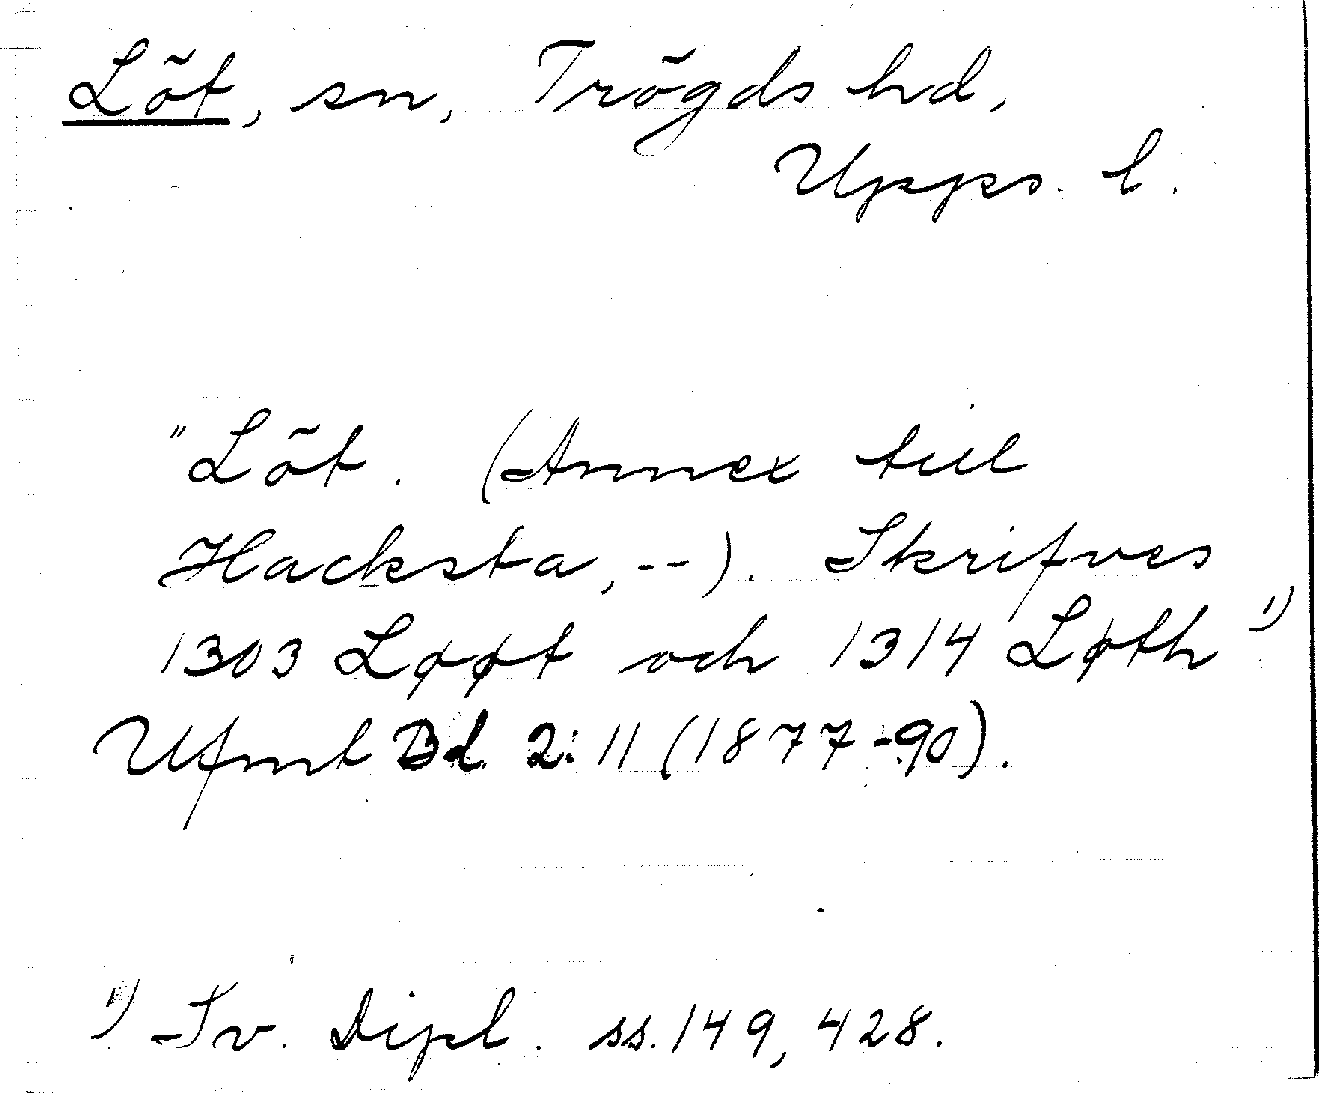 Löt, sn, Trögds hd,
Upps. l.
"Löt. (Annex till
Hacksta, --). Skrifves
1303 Løøt och 1314 Løth" 1)
Ufmt Bd. 2: 11 (1877-90).
1) Sv. Dipl. ss. 149, 428.